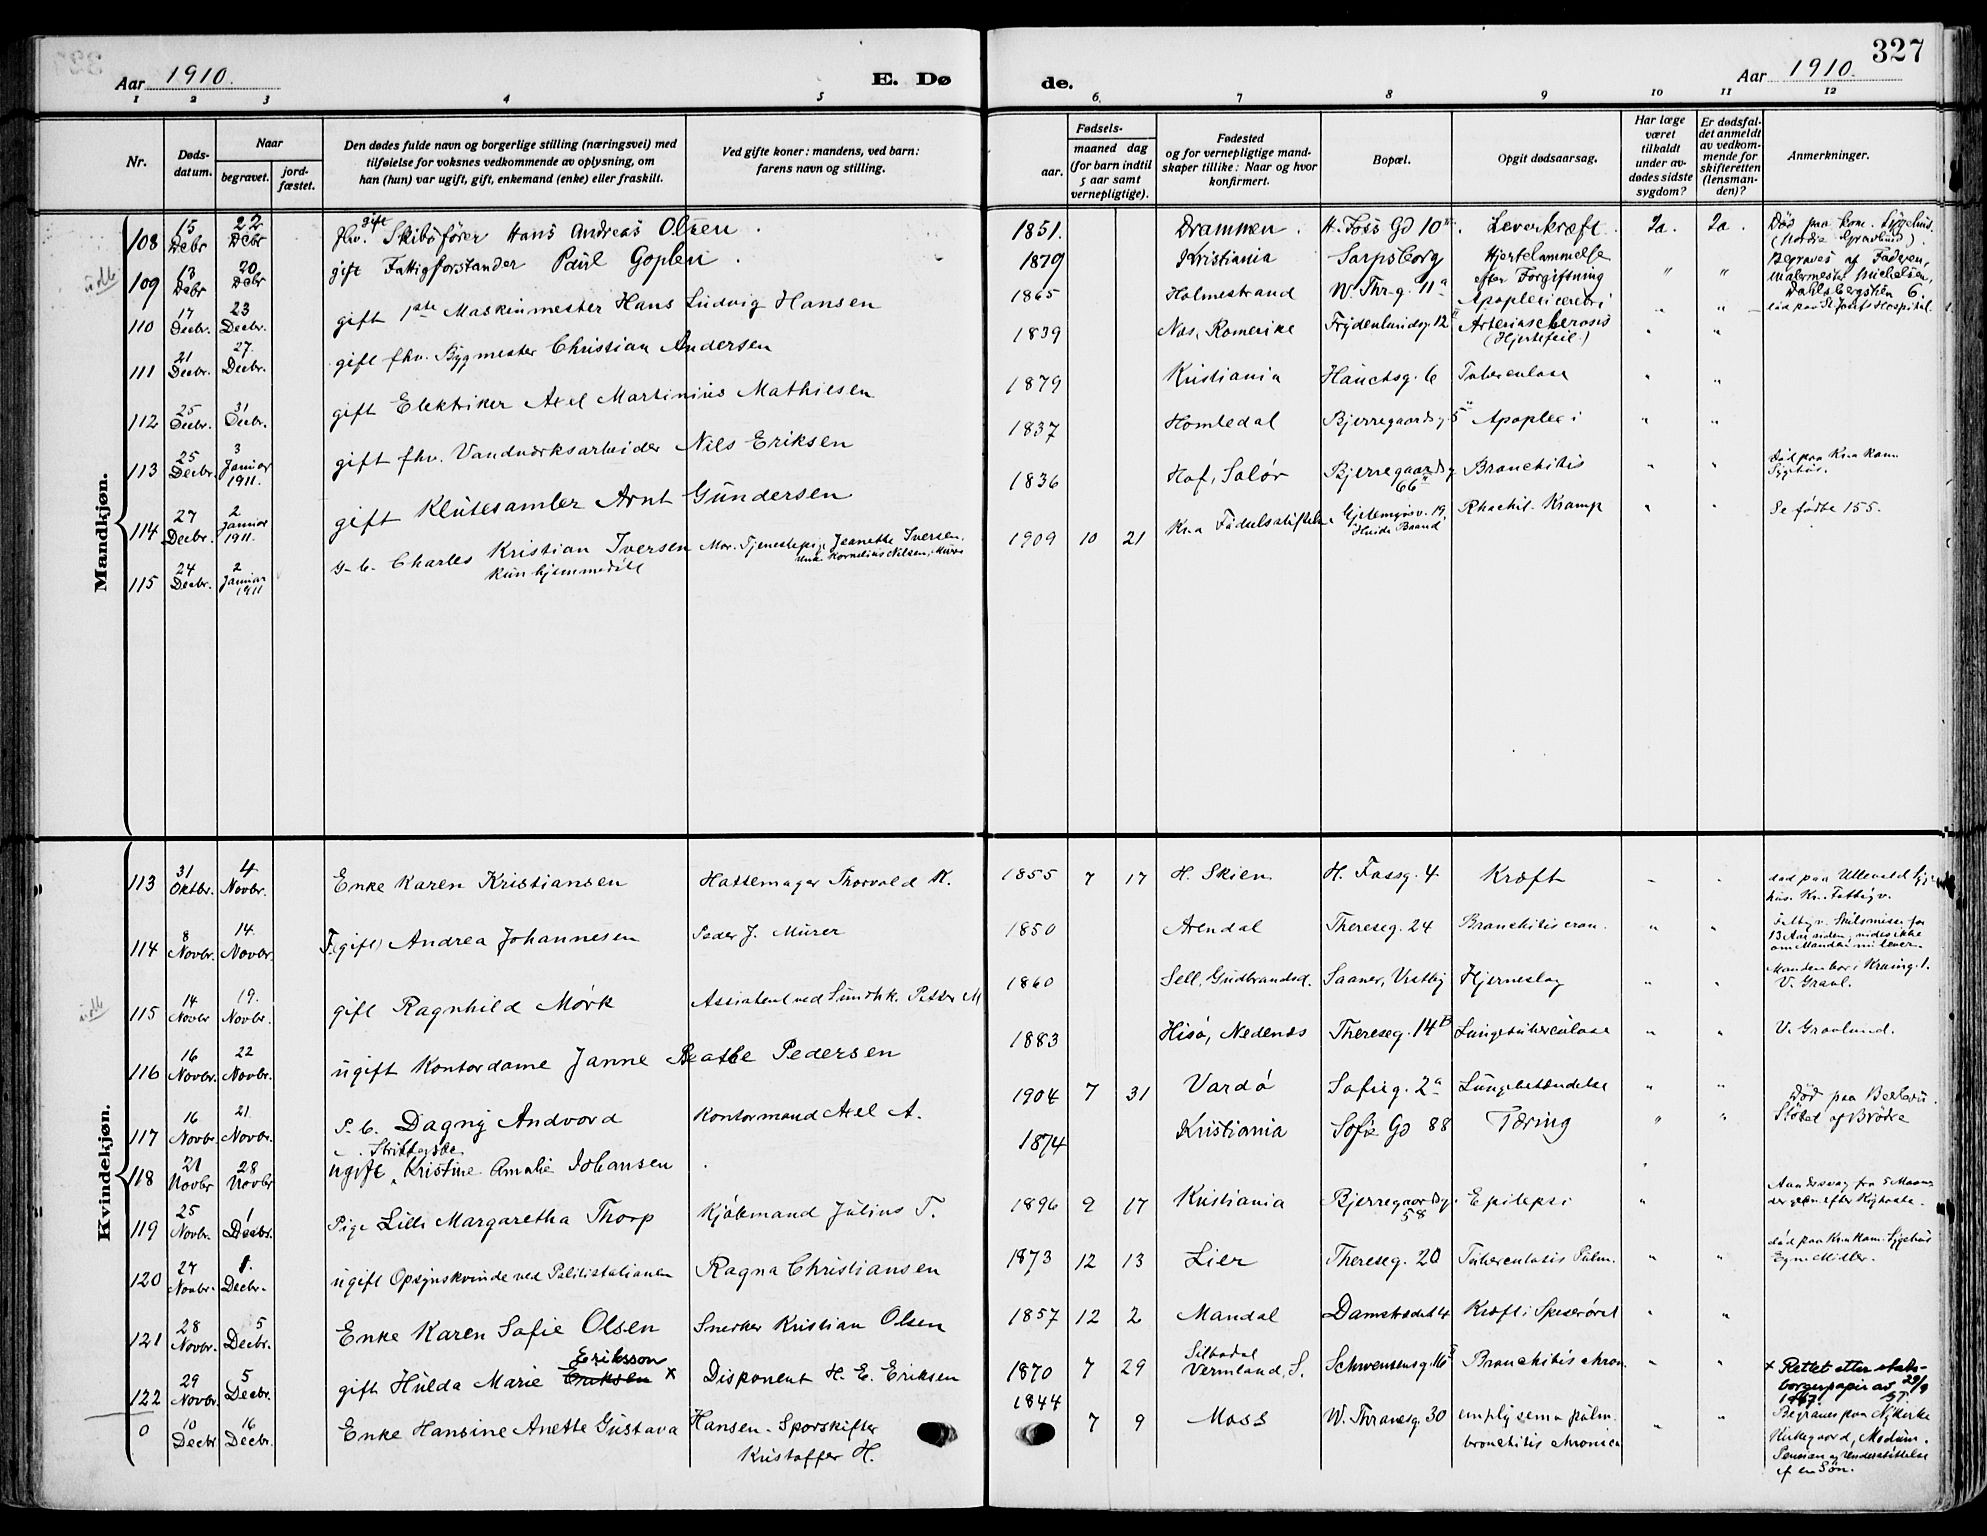 327
Aar 1910. E. Dø de. Aar 1910.
1 2 3 4 5 6. 7 8 9 10 11 12
Nr. Døds-datum. Naar begravet. jord-fæstet. Den dødes fulde navn og borgerlige stilling (næringsvei) med tilføielse for voksnes vedkommende av oplysning, om han (hun) var ugift, gift, enkemand (enke) eller fraskilt. Ved gifte koner: mandens, ved barn: farens navn og stilling. Fødsels- aar. maaned dag (for barn indtil 5 aar samt vernepligtige). Fødested og for vernepligtige mand-skaper tillike: Naar og hvor konfirmert. Bopæl. Opgit dødsaarsag. Har læge været tilkaldt under av-dødes sidste sygdom? Er dødsfal-det anmeldt av vedkom-mende for skifteretten (lensman-den)? Anmerkninger.
Mandkjøn.
108 15 Debr 22 Debr fhv. gift Skibsfører Hans Andreas Olsen. 1851. Drammen. H. Foss Gd 10 Leverkræft. Ja. Ja. Død paa kom. Sygehus. (Nordre Gravlund).
109 13 Debr 20 Debr gift Fattigforstander Paul Goplen. 1879 Kristiania Sarpsborg Hjertelammelse efter Forgiftning " " Begraves af Faderen, Malermester Michelsen, Dahlsbergstien 6.
110 17 Decbr. 23 Decbr. gift 1ste Maskinmester Hans Ludvig Hansen 1865 Holmestrand W. Thr. g. 11a Apoplexi cerebri " " død paa St. Josefs Hospital.
111 21 Decbr. 27. Decbr. gift fhv. Bygmester Christian Andersen 1839 Nes, Romerike Frydenlundsg. 12 Arteriosclerosis (Hjertefeil.) " "
112 25 Decbr. 31 Decbr. gift Elektriker Axel Martinius Mathiesen 1879 Kristiania Hauchsg. 6 Tuberculose " "
113 25 Decbr. 3 Januar 1911. gift fhv. Vandverksarbeider Nils Eriksen 1837 Homledal Bjerregaardsg 5 Apoplexi " "
114 27 Decbr. 2 Januar 1911. gift Klutesamler Arnt Gundersen 1836 Hof, Solør Bjerregaardsg 66 Bronchitis " " Død paa Kr.a kom. Sygehus.
115 24 Decbr. 2 Januar 1911 g. b. Charles Kristian Iversen kun hjemmedøbt Mor. Tjenestepige Jeanette Iversen, Kornelius Nilsen, Murer 1909 10 21 Kr.a Fødselsstiftelse Gjetemyrsv. 19 Rhachit. Kramp " " Se fødte 155.
Kvindekjøn.
113 31 Oktbr. 4 Novbr. Enke Karen Kristiansen Hattemager Thorvald K. 1855 7 17 H. Skien H. Fossg. 4 Kræft " " død paa Ullevaal Sygehus. Kr. Fattigv.
114 8 Novbr. 14. Novbr. F. (gift) Andrea Johannesen Peder J. Murer 1850 Arendal Thereseg. 24 Bronchitis cron. " " Fattigv. Skilsmisse for 13 Aar siden, vides ikke om Manden nu lever.
115 14 Novbr 19. Novbr. gift Ragnhild Mørk Assistent ved Sundhk. Petter M 1860 Sell, Gudbrandsd. Saaner, Vestby Hjerneslag " " Manden bor i Kraing. 1. V. Gravl.
116 16 Novbr. 22 Novbr. ugift Kontordame Janne Beathe Pedersen 1883 Hisø, Nedenes Thereseg. 14B Lungetuberculose " " V. Gravlund.
117 16 Novbr. 21. Novbr. P. b. Dagny Andvord Kontormand Axel A. 1904 7 31 Vardø Sofieg. 2a Lungebetændelse " "
118 21 Novbr 28 Novbr ugift Kristine Amalie Johansen 1874 Kristiania Sofie Gd 88 Tæring " " Død paa
119 25 Novbr. 1 Decbr. Pige Lilli Margaretha Thorp Kjøbmand Julius T. 1896 9 17 Kristiania Bjerregaardsg. 58 Epilepsi " Aandssvag fra 5 Maaneder gl.
120 27 Novbr. 1. Decbr. ugift Opsynskvinde ved Politistationen Ragna Christiansen 1873 12 13 Lier Thereseg. 20 Tuberculosis Pulm. " " død paa Kr.a kom. Sygehus Egne Midler.
121 28 Novbr. 5 Decbr. Enke Karen Sofie Olsen Snedker Kristian Olsen 1857 12 2 Mandal Damstredet 4 Kræft i Spiserøret " "
122 29 Novbr. 5 Decbr. gift Hulda Marie Eriksen x Eriksson Disponent H. E. Eriksen 1870 7 29 Silbodal Vermland, S. Schwensensg. 16 Bronchitis chron. " " x Rettet etter stats-borgerpapir av 29/9 1947.
0 10 Decbr 16 Decbr. Enke Hansine Anette Gustava Hansen - Sporskifter Kristoffer H. 1844 7 9 Moss W. Thranesg. 30 emphysema pulm. bronchitis chronica " " Begraves paa Nykirke Kirkegaard, Modum. Pension og Understøttelse af en Søn.